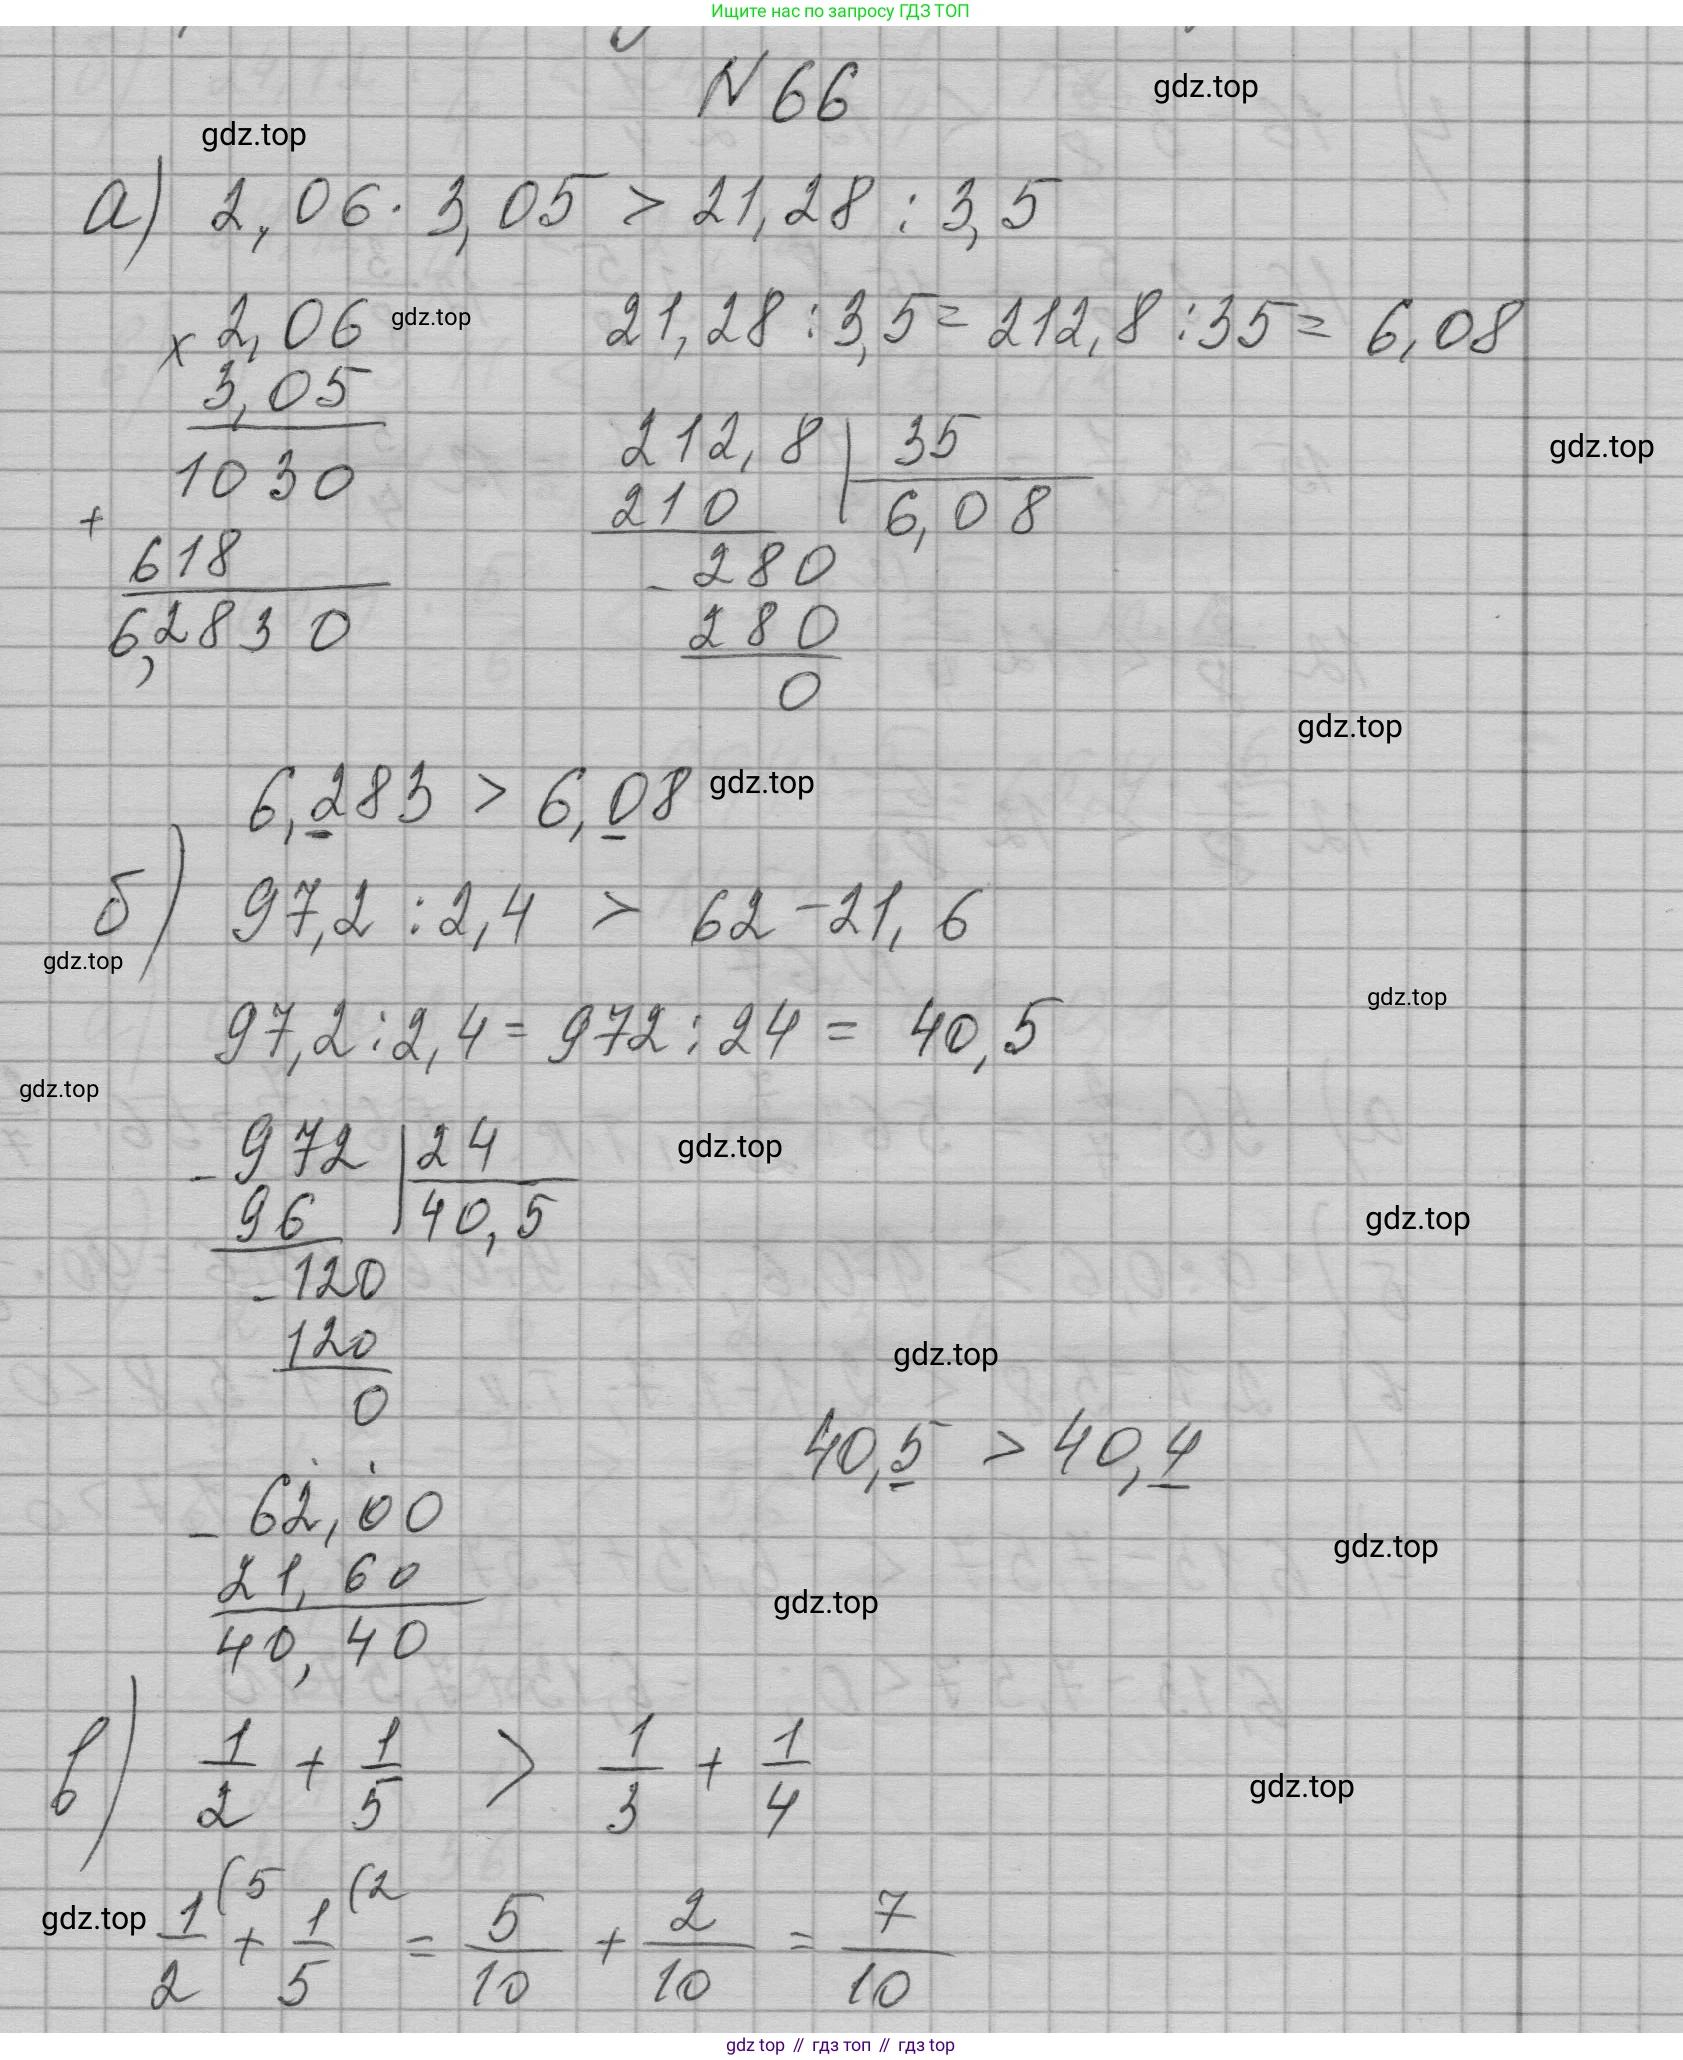 Ищите нас по запросу ГДЗ ТОП
N 66
gdz.top
gdz.top
а) 2,06 · 3,05 > 21,28 : 3,5
× 2,06 gdz.top 21,28 : 3,5 = 212,8 : 35 = 6,08
3,05
212,8 | 35
gdz.top
1030
210 6,08
+
618
- 280
6,2830
280
0
gdz.top
6,283 > 6,08 gdz.top
б) 97,2 : 2,4 > 62 - 21,6
gdz.top
gdz.top
97,2 : 2,4 = 972 : 24 = 40,5
gdz.top
- 972 | 24
gdz.top
96 40,5
gdz.top
- 120
120
gdz.top
0
40,5 > 40,4
- 62,00
gdz.top
21,60
gdz.top
40,40
в) 1/2 + 1/5 > 1/3 + 1/4
gdz.top
gdz.top
1/2 (5 + 1/5 (2 = 5/10 + 2/10 = 7/10
gdz top // гдз топ // гдз top